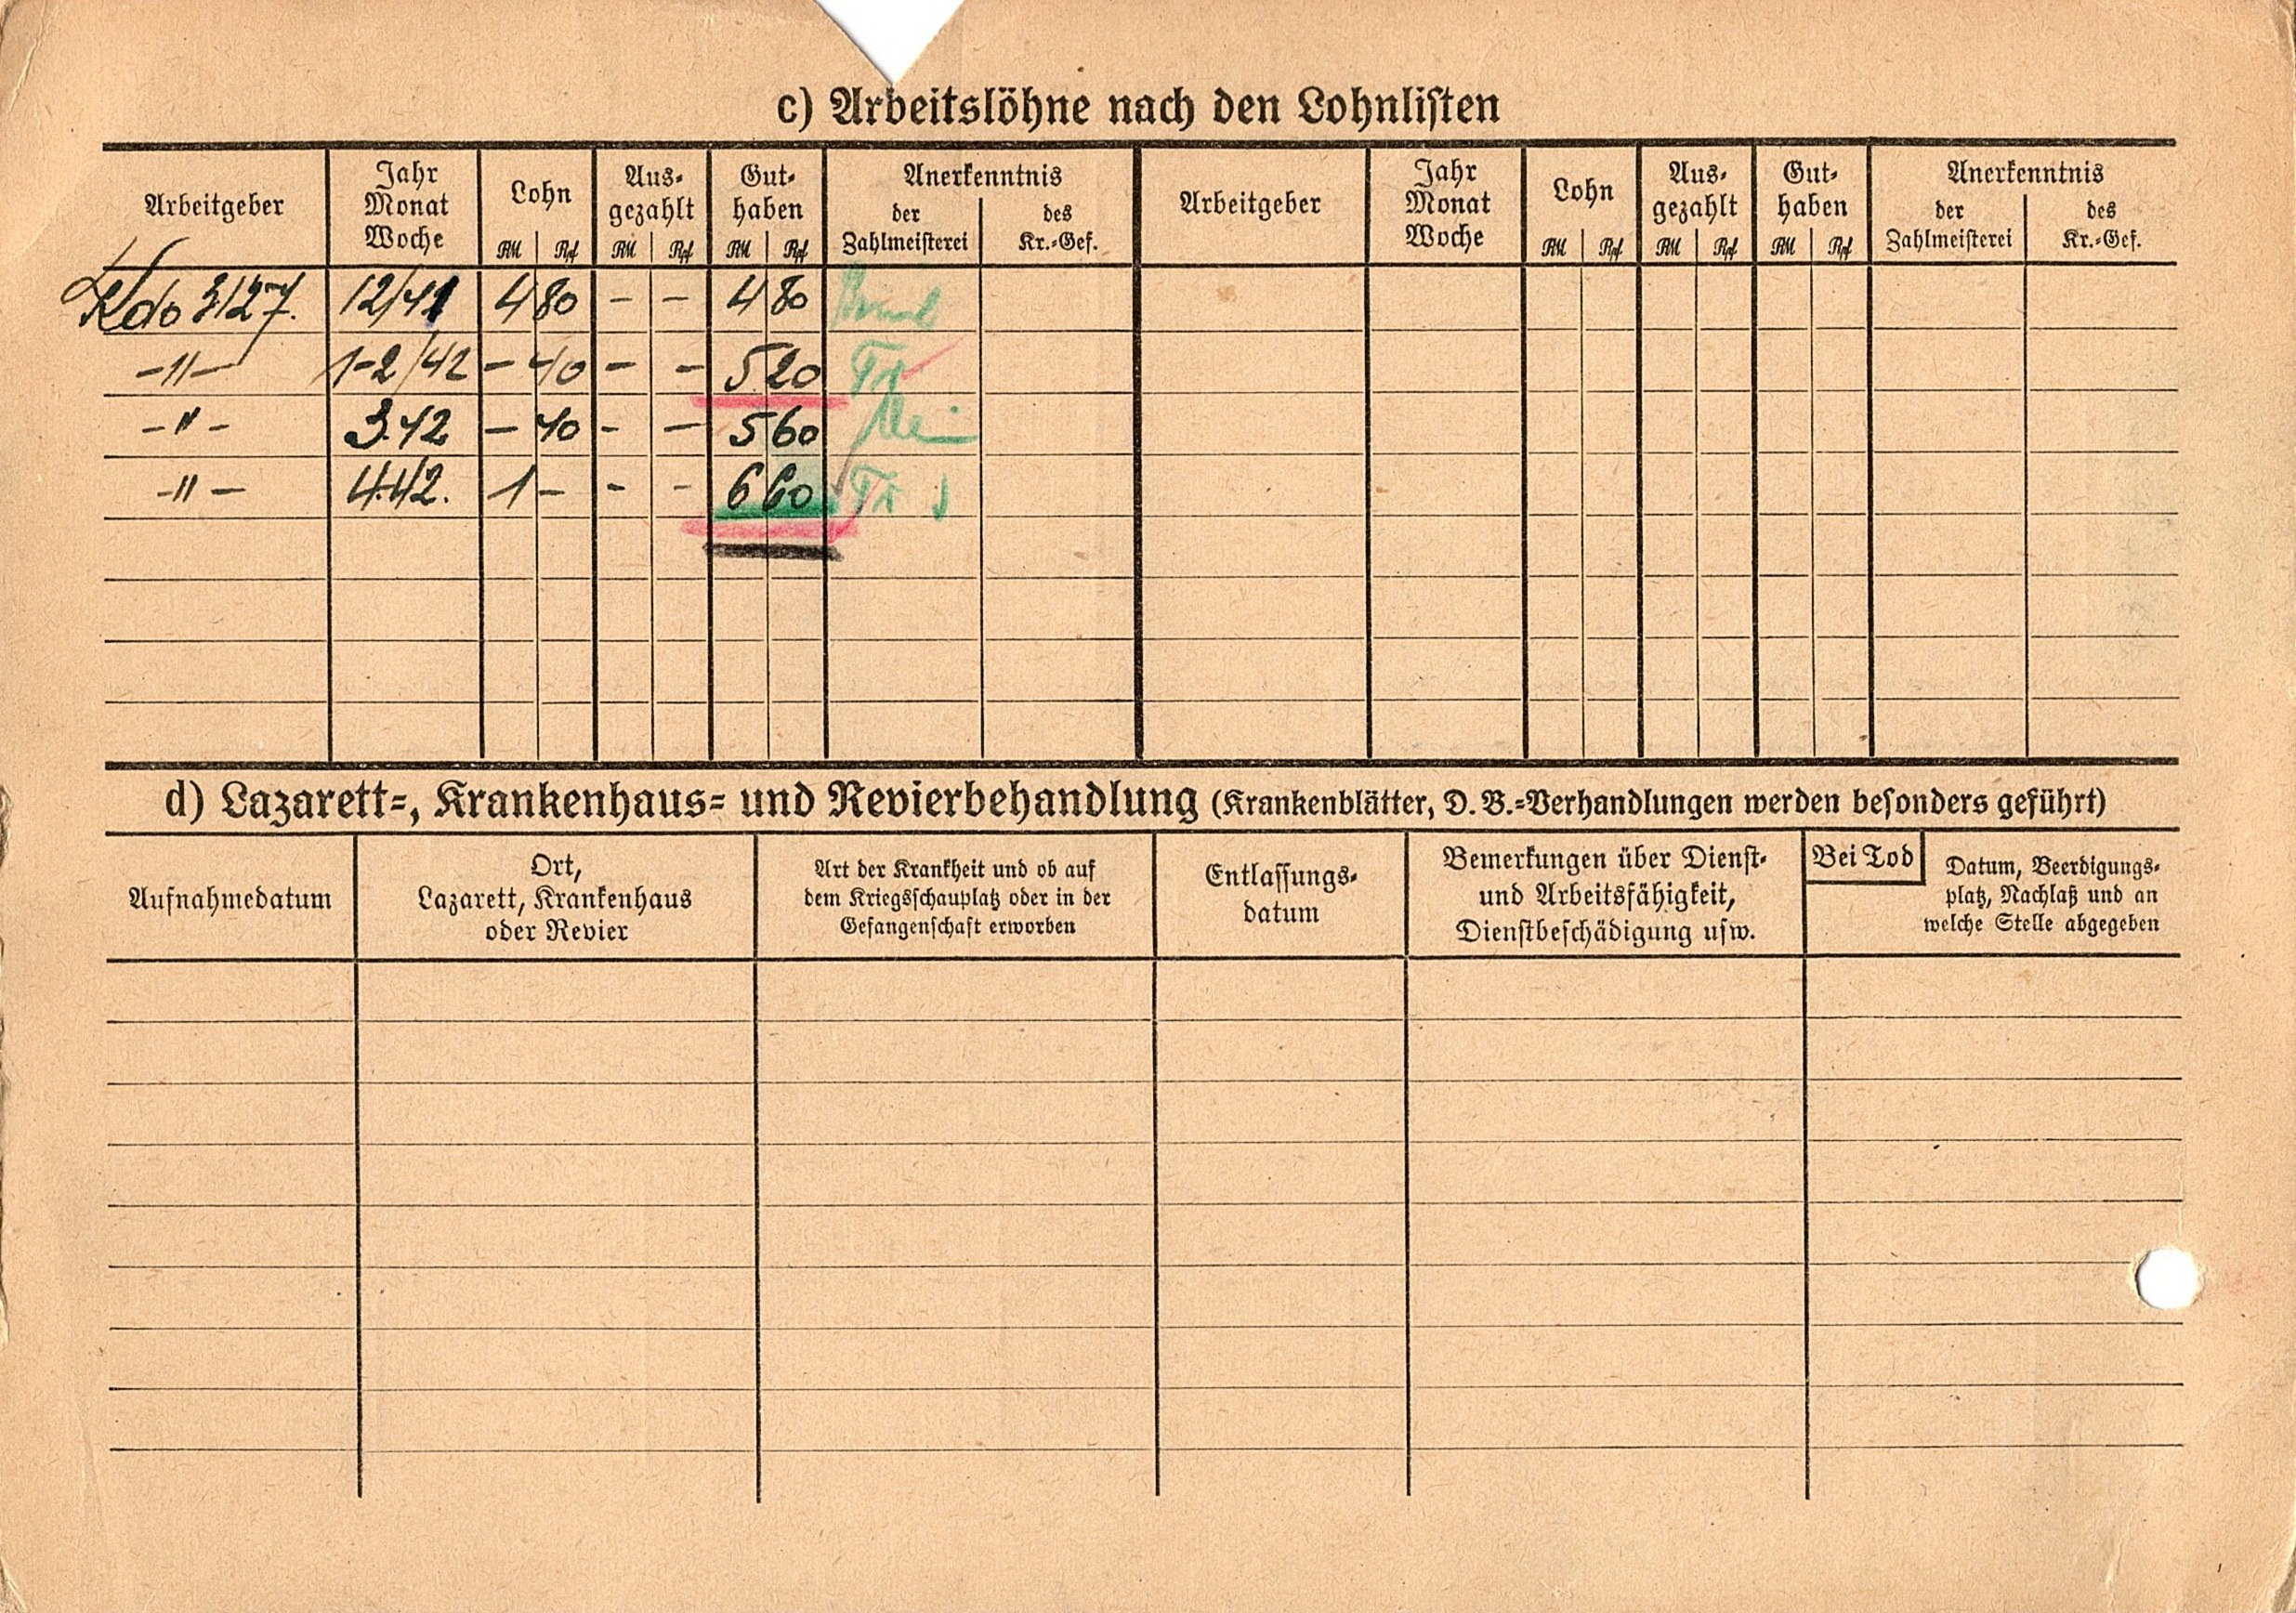 c) Arbeitslöhne nach den Lohnlisten
Arbeitgeber Jahr Monat Woche Lohn RM Rpf Aus-gezahlt RM Rpf Gut-haben RM Rpf Anerkenntnis der Zahlmeisterei des Kr.-Gef. Arbeitgeber Jahr Monat Woche Lohn RM Rpf Aus-gezahlt RM Rpf Gut-haben RM Rpf Anerkenntnis der Zahlmeisterei des Kr.-Gef.
Kdo 3127. 12/41 4 80 – – 4 80
–"– 1-2/42 – 40 – – 5 20
–"– 3.42 – 40 – – 5 60
–"– 4.42. 1 – – – 6 60
d) Lazarett-, Krankenhaus- und Revierbehandlung (Krankenblätter, D. B.-Verhandlungen werden besonders geführt)
Aufnahmedatum
Ort,
Lazarett, Krankenhaus
oder Revier
Art der Krankheit und ob auf
dem Kriegsschauplatz oder in der
Gefangenschaft erworben
Entlassungs-
datum
Bemerkungen über Dienst-
und Arbeitsfähigkeit,
Dienstbeschädigung usw.
Bei Tod
Datum, Beerdigungs-
platz, Nachlaß und an
welche Stelle abgegeben